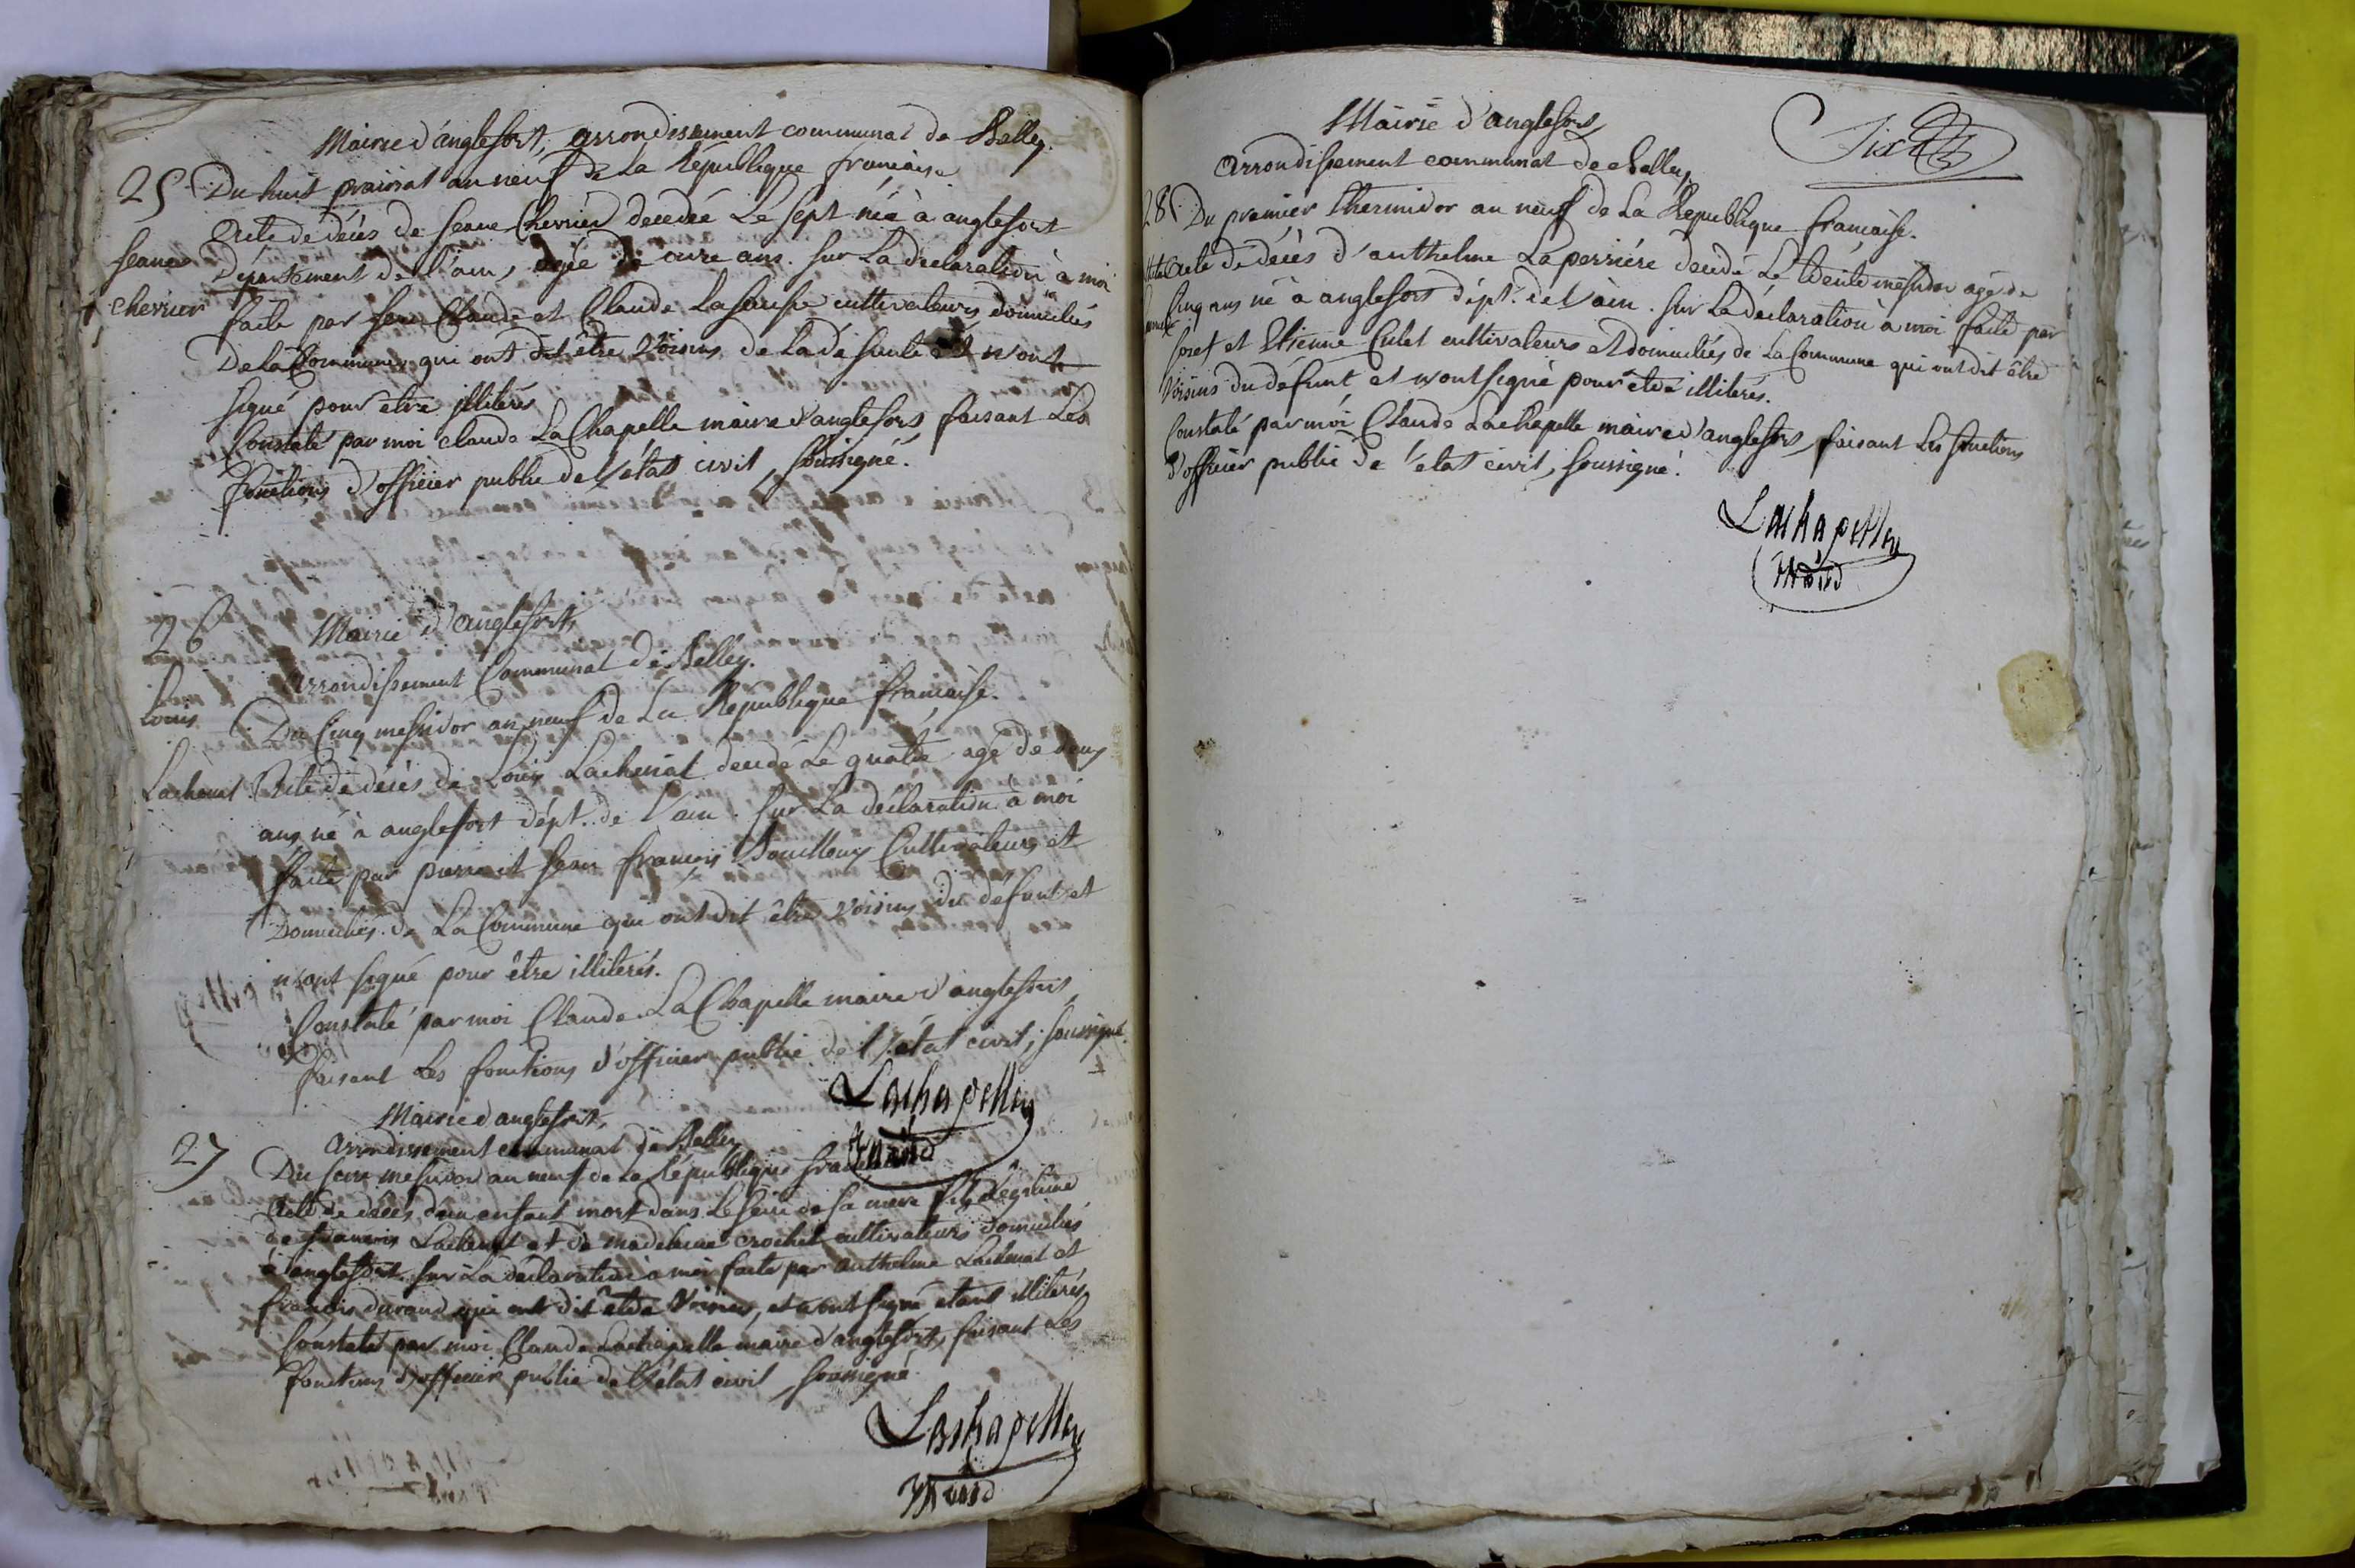 Mairie d'anglefort, arrondissement communal de Belley.
25 Du huit prairial an neuf de La République francaise
Acte de décès de Jeane Cherrier decedée Le sept née à anglefort
Jeanne
Département de l'ain, agée de onze ans. sur La declaration à moi
cherrier
faite par Jean Claude et Claude Lasausse cultivateurs domiciliés
De la Commune qui ont dit être Voisins de La défunte et n'ont
signé pour etre illiterés
Constaté par moi claude La Chapelle maire d'anglefort faisant Les
fonctions d'officier public de l'état civil, soussigné.
26
Mairie d'anglefort,
arrondissement Communal de Belley.
Louis
Du Cinq messidor an neuf de La République francaise.
Lachenal
Acte de décès de Louis Lachenal decedé Le quatre agé de deux
ans né à anglefort dépt. de l'ain. sur La déclaration à moi
faite par pierre et Jean francois Cultivateurs et
Domiciliés de La Commune qui ont dit être voisins du défunt et
n'ont signé pour être illiterés.
Constaté par moi Claude La Chapelle maire d'anglefort,
faisant Les fonctions d'officier public de l'état civil, soussigné.
Lachapelle
27
Mairie d'anglefort,
arrondissement communal de Belley
Du messidor an neuf de La République
Acte de décès d'un enfant mort dans Le sein de sa mère fils Légitime
de francois Lachenal et de madeleine crochet cultivateurs domiciliés
à anglefort. sur La déclaration à moi faite par anthelme Lachenal et
francois durand qui ont dit etre Voisins, et n'ont signé etant illiterés
Constaté par moi Claude Lachapelle maire d'anglefort, faisant Les
fonctions d'officier public de l'état civil, soussigné.
Lachapelle
Mairie d'anglefort,
arrondissement communal de Belley,
28 Du premier thermidor an neuf de La République francaise.
Acte de décès d'anthelme Laperriére decedé Le trente messidor agé de
Cinq ans né à anglefort dépt. de l'ain. sur La déclaration à moi faite par
Josef et Etienne Culet cultivateurs et domiciliés de La Commune qui ont dit être
Voisins du défunt, et n'ont signé pour etre illiterés.
Constaté par moi Claude Lachapelle maire d'anglefort, faisant Les fonctions
d'officier public de l'etat civil, soussigné.
Lachapelle